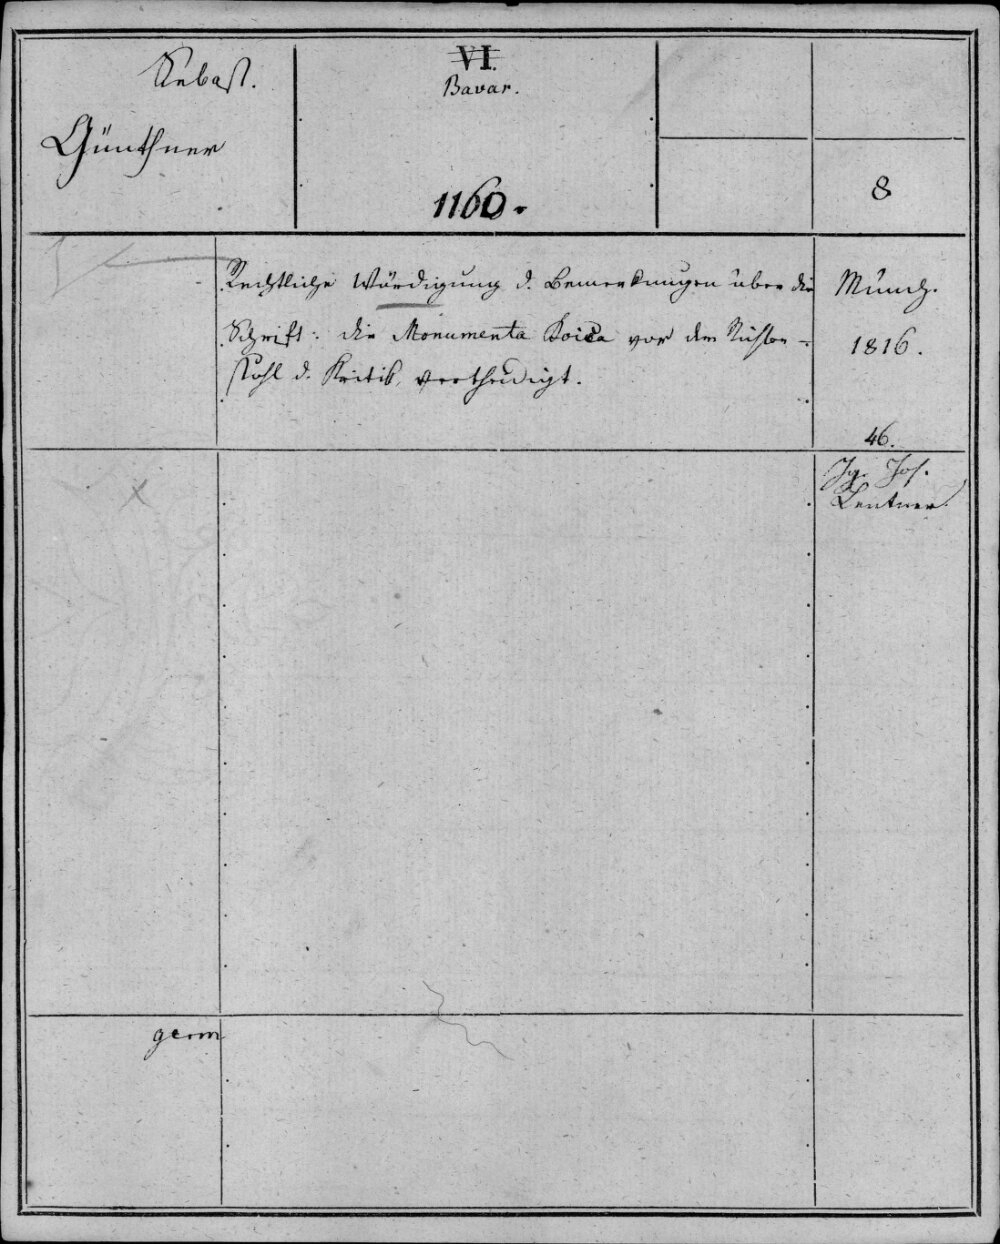 Sebast.
Günthner
VI.
Bavar.
1160.
8
Rechtliche Würdigung d. Bemerkungen über die
Schrift: die Monumenta Boica vor dem Richter-
stuhl d. Kritik, vertheidigt.
Münch.
1816.
46.
Ig. Jos.
Lentner.
germ